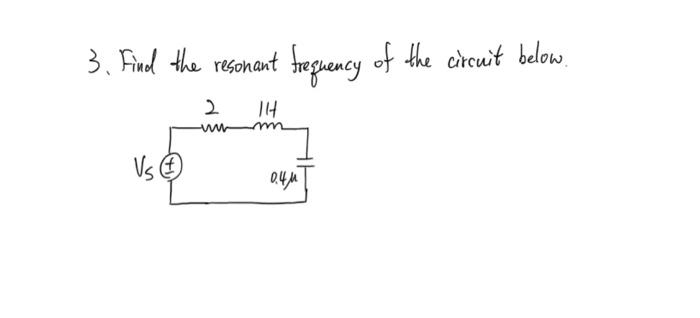 3. Find the resonant frequency of the circuit below.
2 1H
Vs
0.4μ